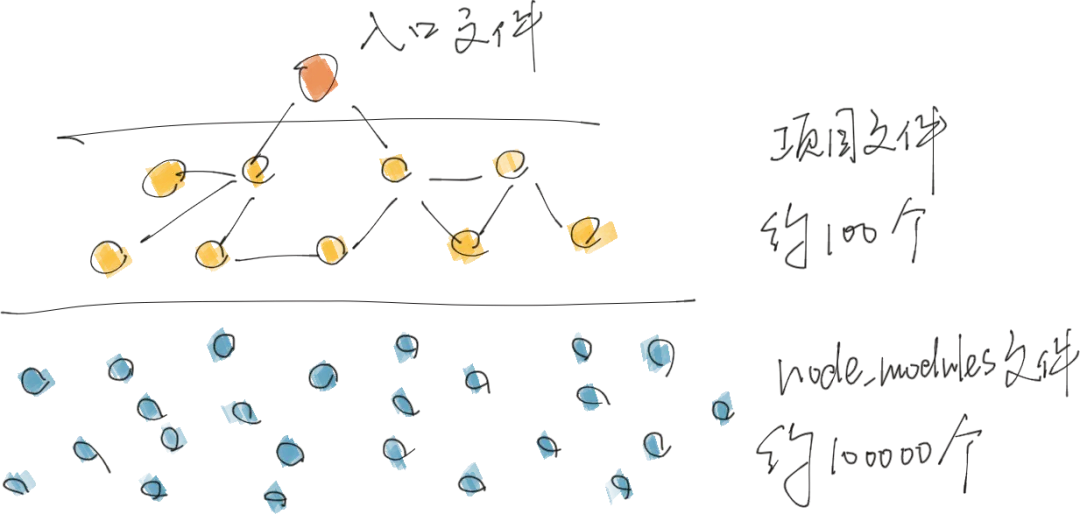 入口文件
项目文件
约100个
node_modules文件
约100000个